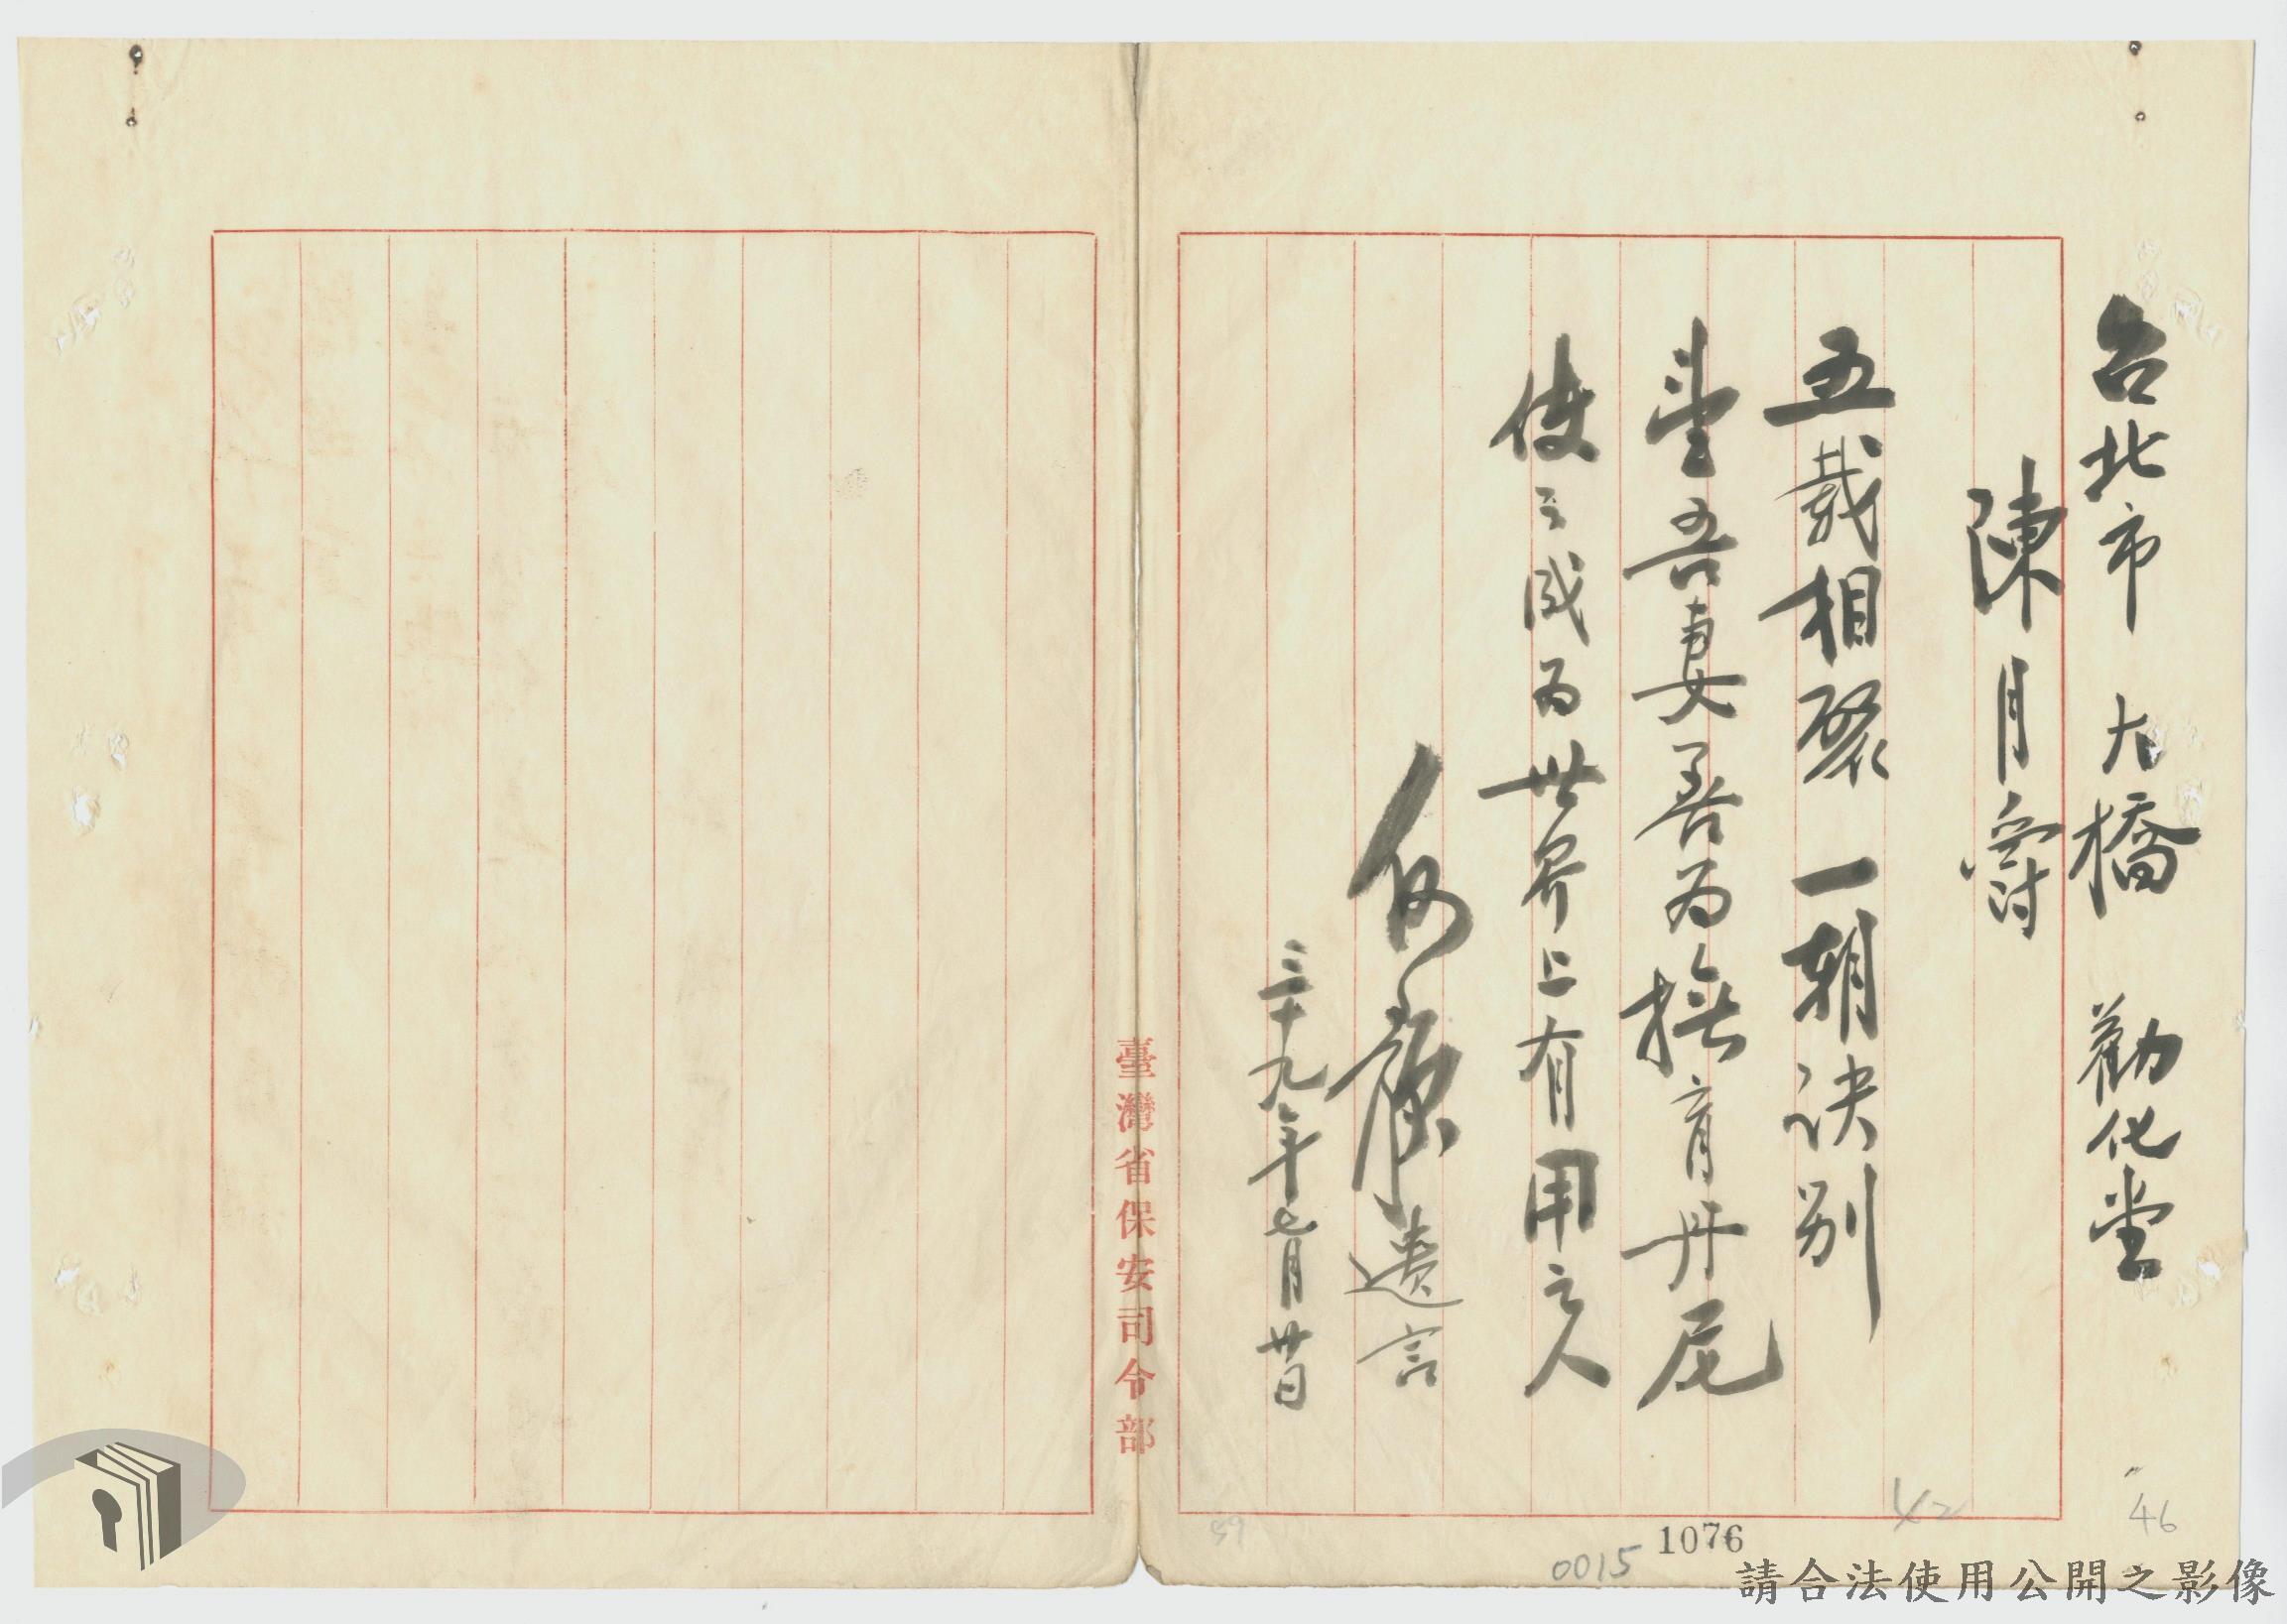 台北市 大橋 勸化堂
陳月爵
五載相聚一朝決別
望吾妻善为撫育丹尼
使之成为世界上有用之人
何康遺言
三十九年七月廿日
臺灣省保安司令部
42
46
59
1076
0015
請合法使用公開之影像